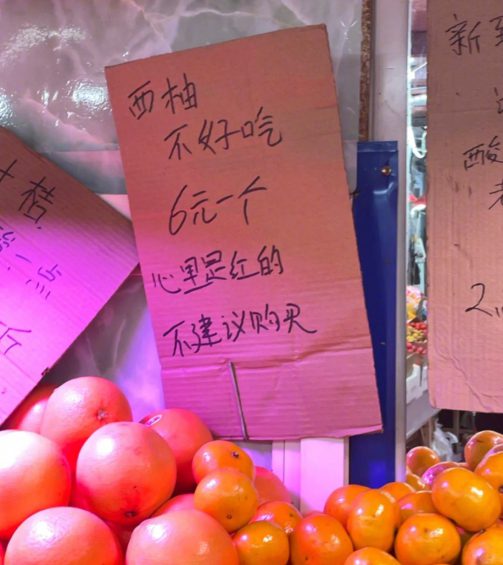 西柚
不好吃
6元一个
心里是红的
不建议购买
桔
一点
个
新
酸
2